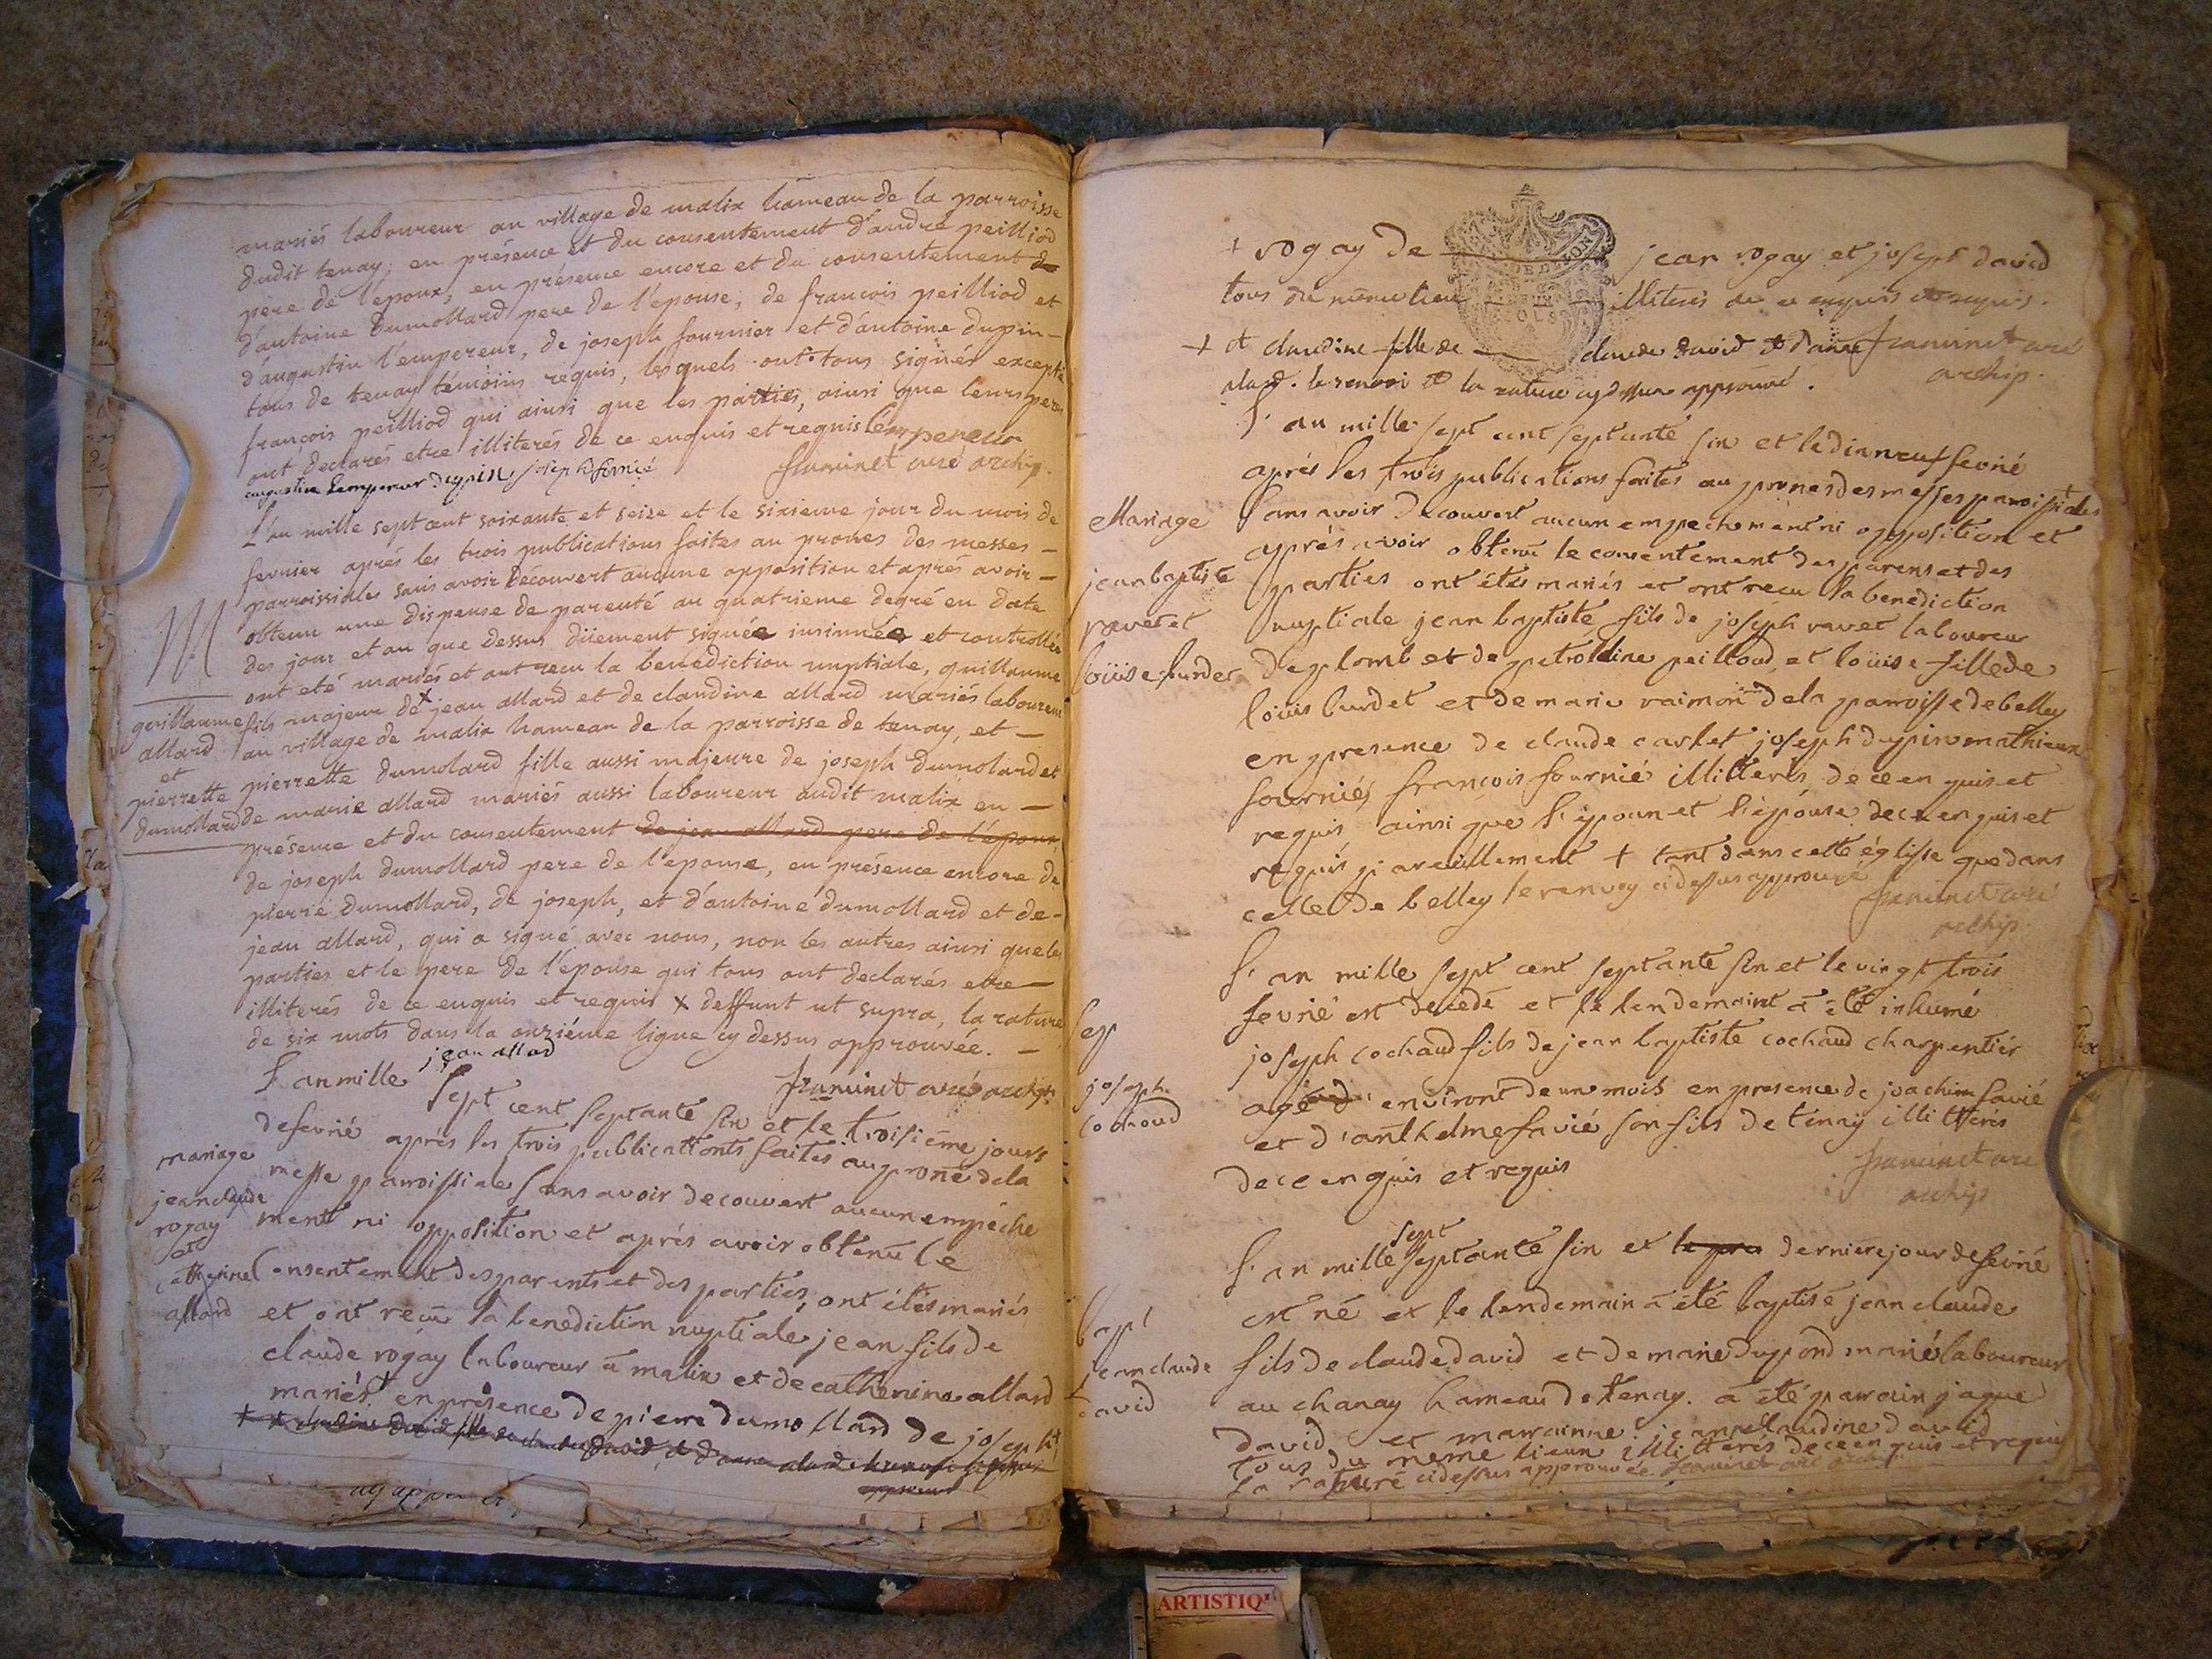 mariés laboureur au village de malix hameau de la parroisse
dudit tenay, en présence et du consentement d'andré peilliod
père de l'époux, en présence encore et du consentement de
d'antoine dumollard pere de l'épouse, de francois peilliod et
d'augustin l'empereur, de joseph fournier et d'antoine dupin
tous de tenay témoins réquis, lesquels ont tous signés excepté
françois peilliod qui ainsi que les parties, ainsi que leurs peres
ont declarés etre illiterés de ce enquis et requis Lempereur
augustin Lempereur dupin joseph fornié framinet curé archip.
L'an mille sept cent soixante et seize et le sixieme jour du mois de
fevrier aprés les trois publications faites au prones des messes
parroissiales sans avoir découvert aucune opposition et aprés avoir
obtenu une dispense de parenté au quatrieme degré en date
des jour et an que dessus düement signée insinuée et controllée
ont eté mariés et ont recu la benediction nuptiale, guillaume
fils majeur de x jean allard et de claudine allard mariés laboureur
au village de malix hameau de la parroisse de tenay, et
pierrette dumolard fille aussi majeure de joseph dumolard et
de marie allard mariés aussi laboureur audit malix en
présence et du consentement de jean allard pere de l'époux
de joseph dumollard pere de l'epouse, en présence encore de
pierre dumollard, de joseph, et d'antoine dumollard et de
jean allard, qui a signé avec nous, non les autres ainsi que les
parties et le pere de l'épouse qui tous ont declarés etre
illiterés de ce enquis et requis x deffunt ut supra, la rature
de six mots dans la onziéme ligne cy dessus approuvée.
jean allard
framinet curé archip.
M
guillaume
allard
et
pierrette
dumollard
L'an mille sept cent septante six et le troisiéme jours
de fevrié aprés les trois publicattonts faites au prone dela
messe parroissiale sans avoir decouvert aucun empéche
ment ni opposition et aprés avoir obtenu le
Consentement des parents et des parties, ont étés mariés
et ont recu la benediction nuptiale jean fils de
claude rogay laboureur a malix et de catherine allard
mariés + en présence de pierre dumollard de joseph
mariage
jean claude
rogay
et
catherine
allard
+ et claudine david fille de claude david et d'anne
+ rogay de jean rogay et joseph david
tous du meme lieu illiterés de ce enquis et requis.
+ et claudine fille de claude david et d'anne framinet curé
alard. le renvoi et la rature cy dessus approuvé. archip.
L'an mille sept cent septante six et le dix neuf fevrié
aprés les trois publications faites au prones des messes paroissiales +
sans avoir decouvert aucun empechement ni opposition et
aprés avoir obtenu le consentement des parens et des
parties ont étés mariés et ont recu la benediction
nuptiale jean baptiste fils de joseph ravet laboureur
de plomb et de petroline peilloud, et loüise fille de
loüis burdet et de marie raimon dela parroisse de belley
en presence de claude carlet joseph dupin mathieu
fourniés françois fournié illiterés de ce en quis et
requis ainsi que l'époux et l'épouse de ce en quis et
requis pareillement + tant dans cette églisse que dans
celle de belley le renvoy ci dessus approuvé
framinet curé
archip.
Mariage
jean baptiste
ravet et
loüise burdet
L'an mille sept cent septante six et le vingt trois
fevrié est decedé et le lendemaint a été inhumé
joseph cochaud fils de jean baptiste cochaud charpentiér
agé d'environt de un mois en presence de joachim favié
et d'anthelme favié son fils de tenay illitterés
de ce en quis et requis
framinet curé
archip
Sep
joseph
cochoud
L'an mille sept septante six et le pre derniere jour de fevrié
est né et le lendemain a été baptisé jean claude
fils de claude david et de marie dupond marié laboureur
au chanay hameau de tenay. a été parrain jaque
david et marrainne jeanne claudine david
tous du meme lieux illitterés de ce en quis et requis
la raturé ci dessus approuvée framinet curé archip
bapt
jean claude
david
ARTISTIQ